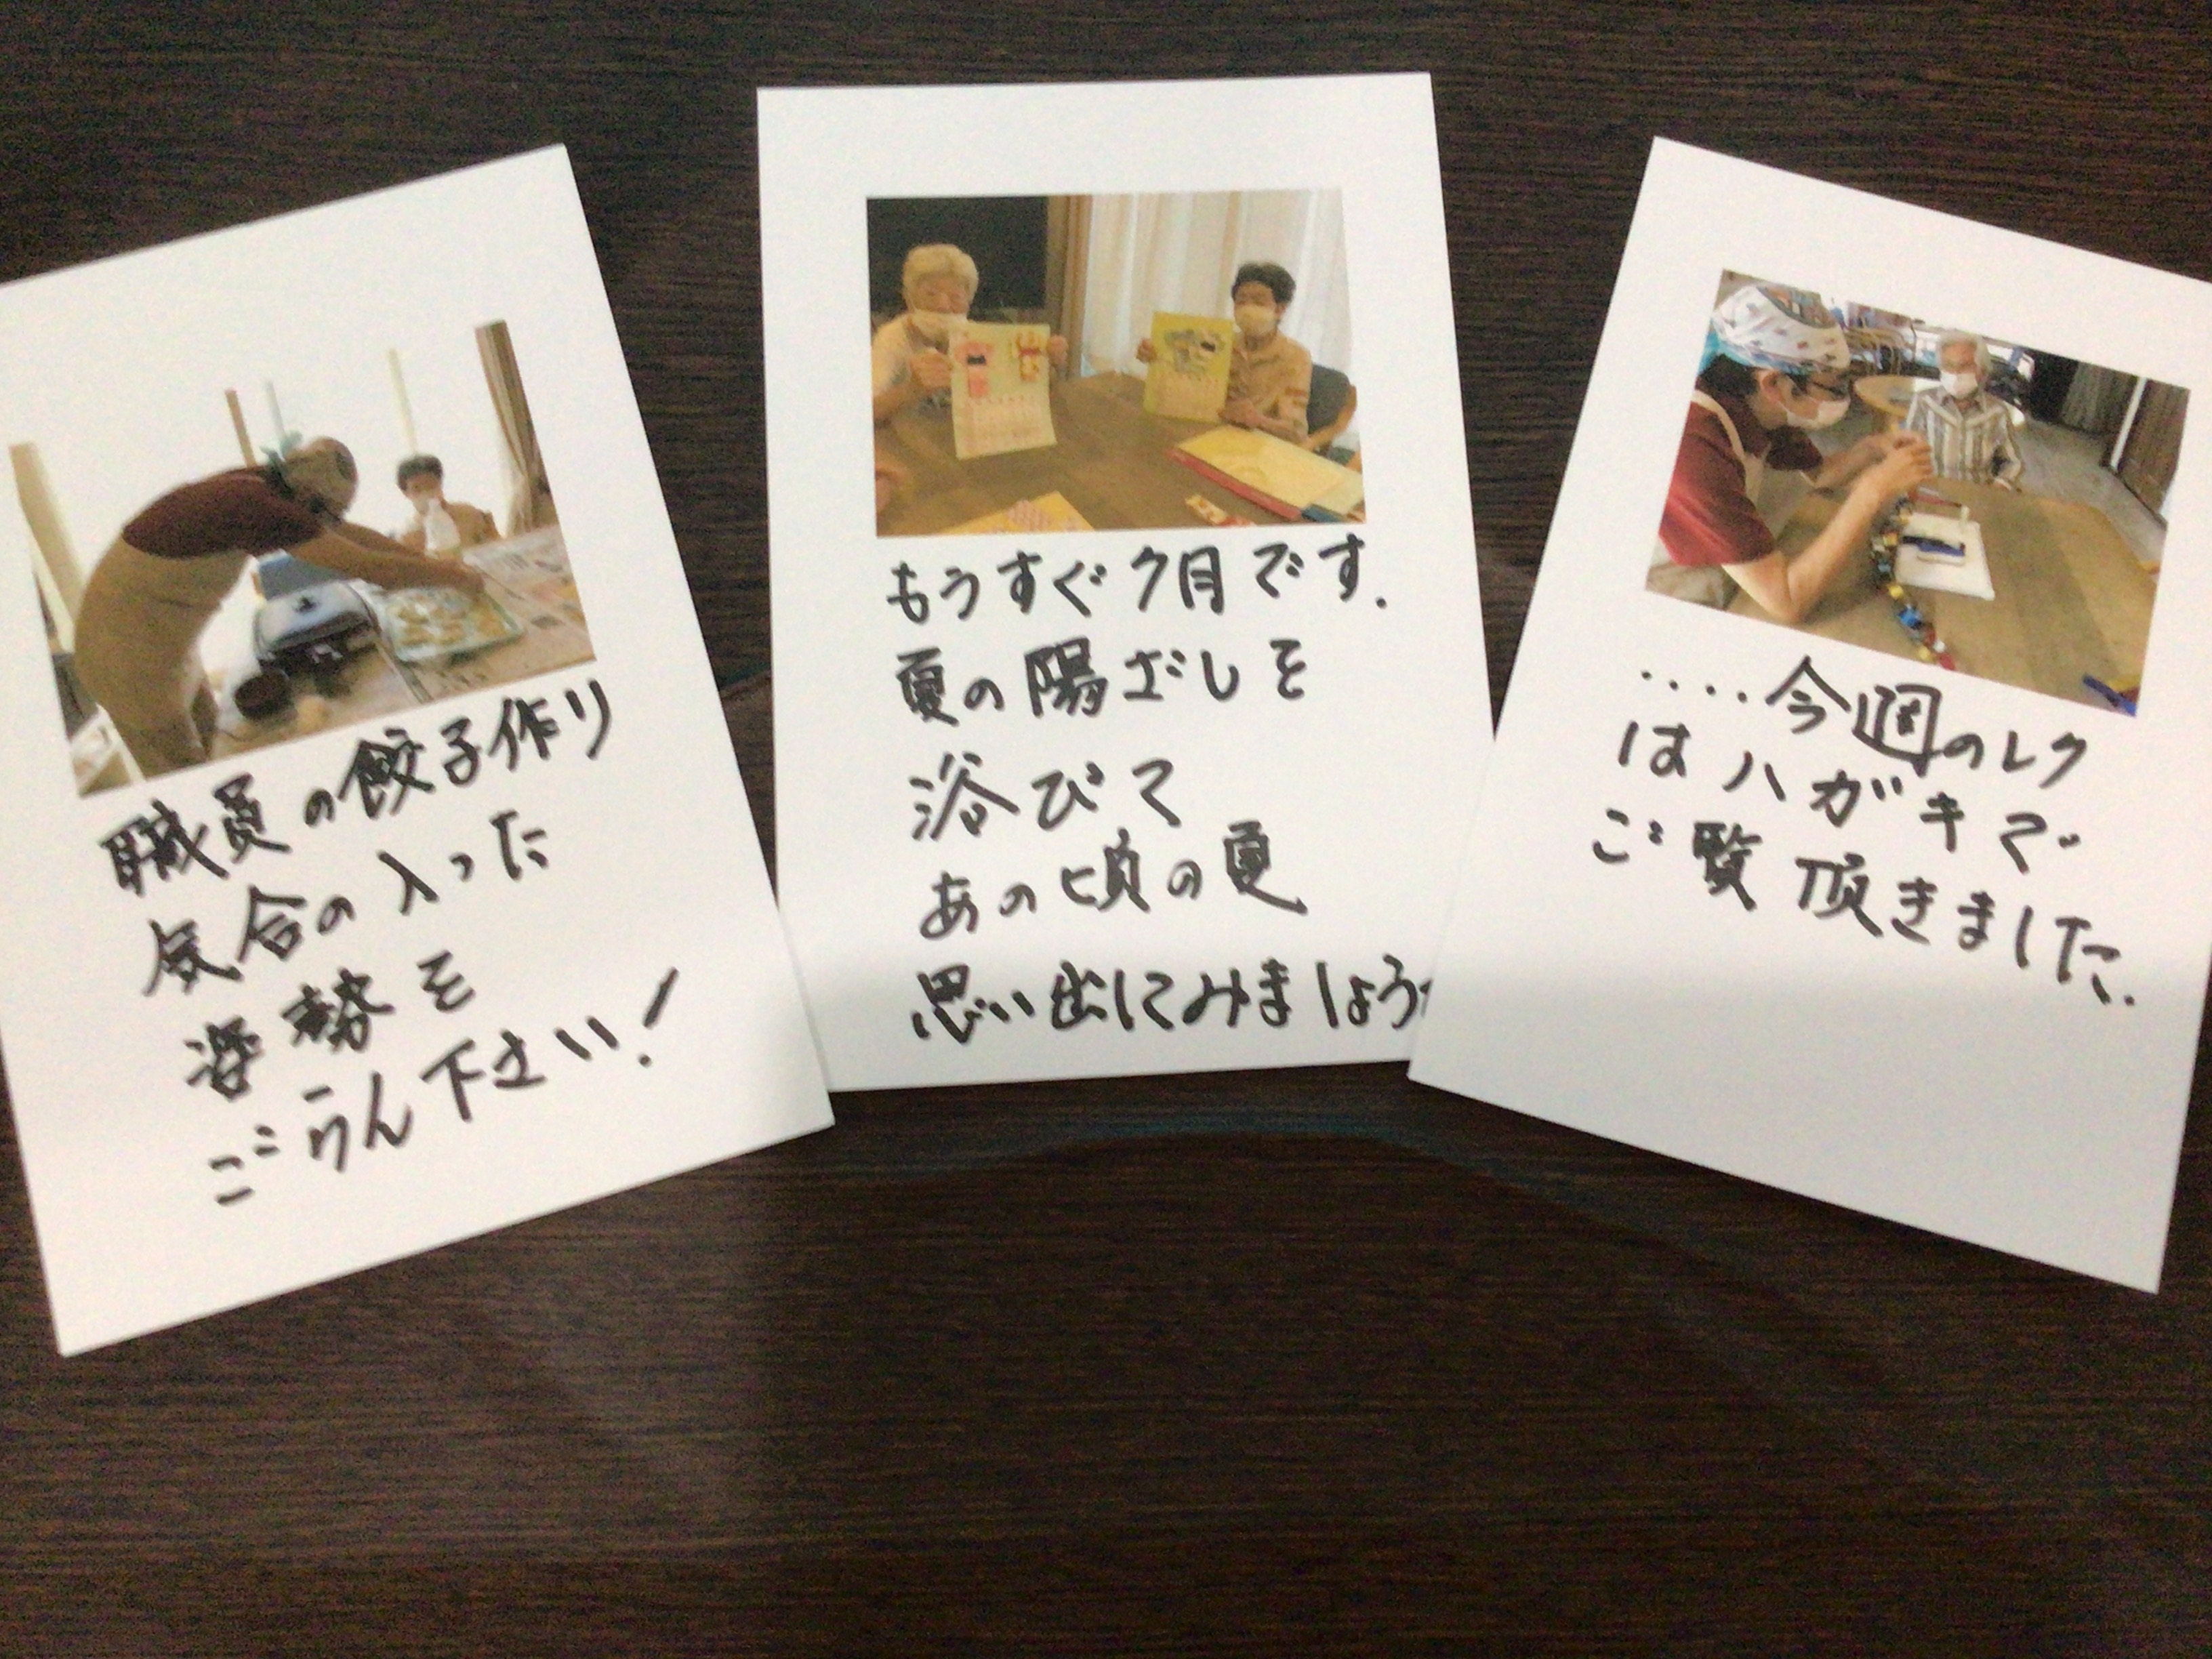 職員の餃子作り
気合の入った
姿勢を
ごらん下さい!
もうすぐ7月です.
夏の陽ざしを
浴びて
あの頃の夏
思い出してみましょう
....今週のレク
はハガキで
ご覧頂きました.